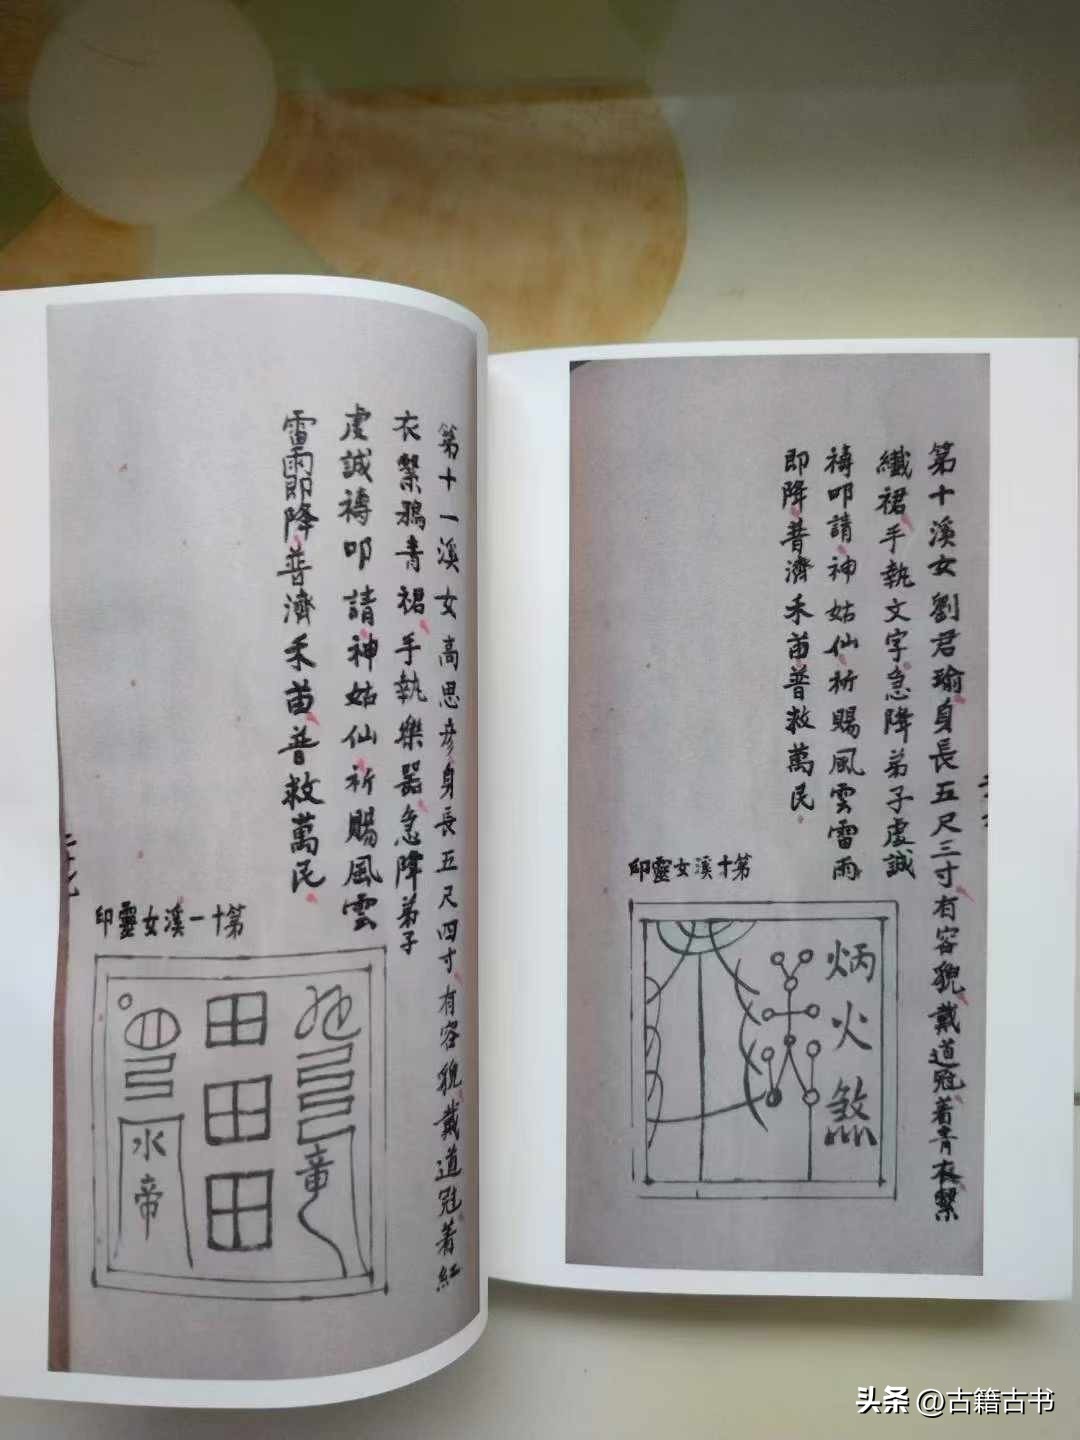 第十溪女劉君瑜身長五尺三寸有容貌戴道冠著青衣繫
纖裙手執文字急降弟子虔誠
禱叩請神姑仙祈賜風雲雷雨
即降普濟禾苗普救萬民
第十溪女靈印
炳火煞
第十一溪女高思彦身長五尺四寸有容貌戴道冠著紅
衣繫鴉青裙手執樂器急降弟子
虔誠禱叩請神姑仙祈賜風雲
雷雨即降普濟禾苗普救萬民
第十一溪女靈印
竜
田田田
水帝
二十七
头条 @古籍古书